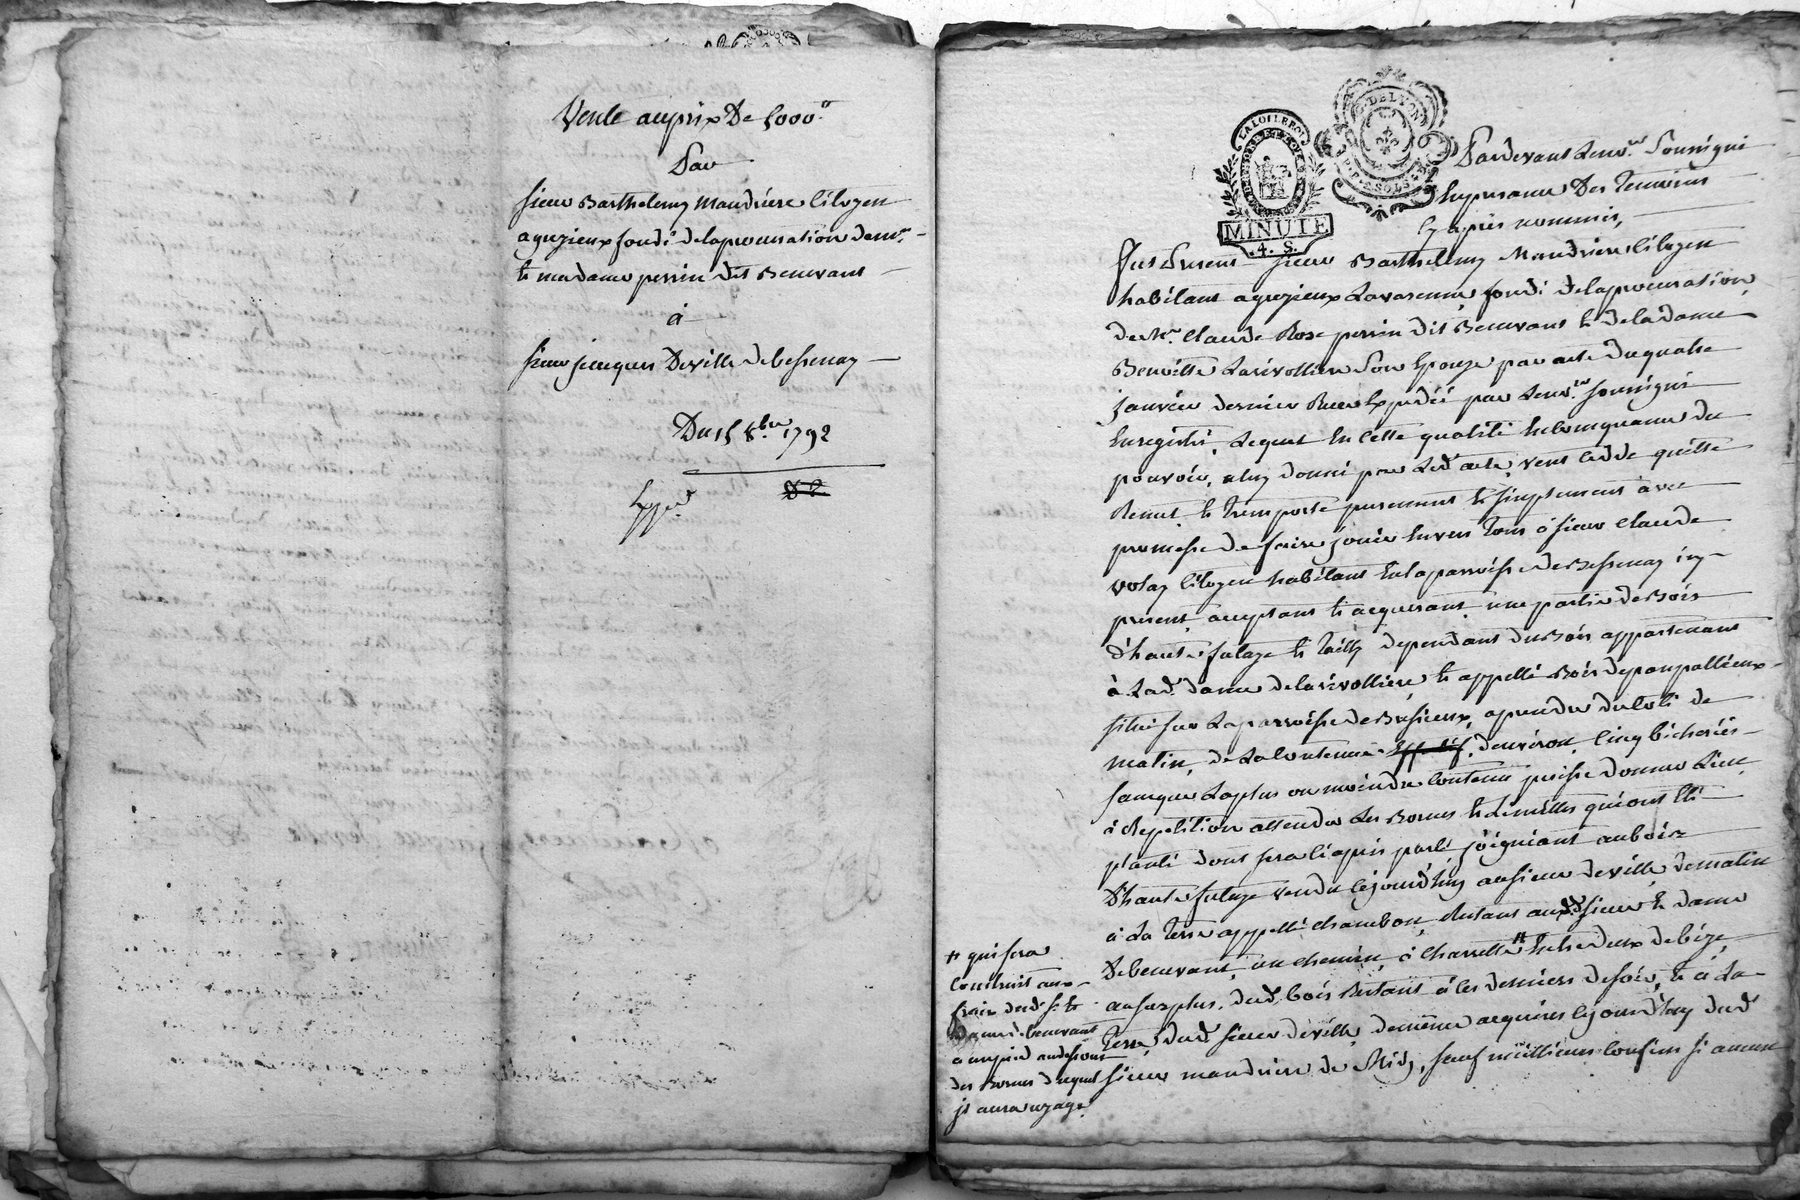 Vente au prix De 5000.#
Par
Sieur Barthelemy Mandriere Citoyen
a fondé de la procuration de mr.
et madame perrin dit Beauvant
à
Sieur jacques Deville de Bessenay
Du 15 8.bre 1792
Expé.
LA LOI LE ROI
MINUTE
.4. S.
G. DE LYON
Pardevant Le no.re Soussigné
En presence Des Temoins
Cy après nommés,
Fut Present Sieur Barthelemy Mandriere Citoyen
habitant a fondé de la procuration
de Mr. Claude Rose perrin dit Beauvant et de la dame
Benoitte Larivolliere Son Epouze par acte du quatre
janvier dernier Recu Expedié par Le no.re Soussigné
Enregistré, Lequel En Cette qualité En Consequence du
pouvoir, a luy donné par Led. acte, vent cedde quitte
Remet et Transporte purement et Simplement avec
promesse de faire jouir Envers Tous à Sieur Claude
volay Citoyen habitant En la parroisse de Bessenay icy
present, acceptant et acquerant, une partie de Bois
d'haute futaye et Tailly dependant du Bois appartenant
à Lad. dame de Larivolliere, et appellé Bois de
Situé Sur La parroisse de, a prendre du Coté de
matin, de La Contenue d'environ, Cinq bicherées
Sans que La plus ou moindre Contenue puisse donner Lieu
à Repetition attendu Les Bornes et Limittes qui ont Eté
planté dont Sera Ci après parlé, joigniant au bois
D'haute futaye vendu Cejourd'huy au Sieur deville de matin
à La Terre appellé Chambon, Restant auxd. Sieur et dame
De beauvant, un chemin, à Charrette # Entre deux de bize
au Surplus, dud. bois Restant à Ces derniers de Soir, et à La
Terre, dud. Sieur deville, de même acquises Cejourd'huy dud.
Sieur mandriere de Midy, Sauf meillieurs Confins Si aucun
# qui Sera
Construit aux
fraix dud. Sr. et
Dame de beauvant
a un pied au dessous
des Bornes duquel
il aura uzage